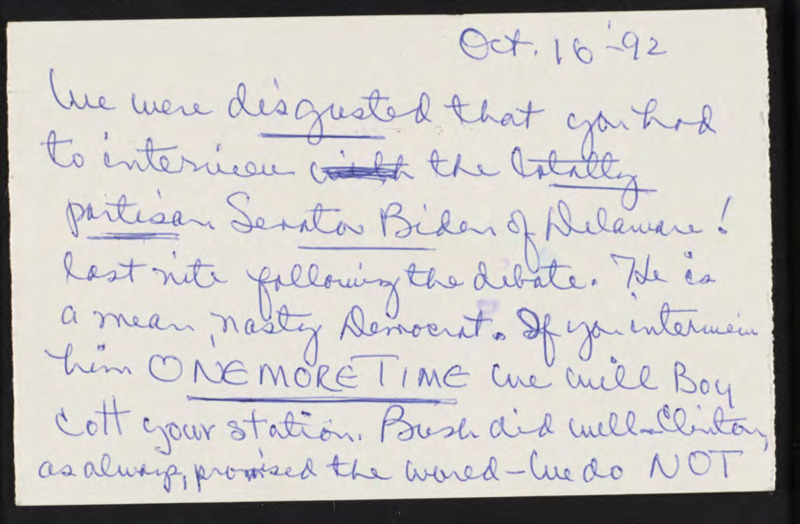 Oct. 16 '-92
We were disgusted that you had
to interview the totally
partisan Senator Biden of Delaware!
last nite following the debate. He is
a mean, nasty Democrat. If you interview
him ONE MORE TIME we will Boy
cott your station. Bush did well - Clinton,
as always, promised the world - We do NOT